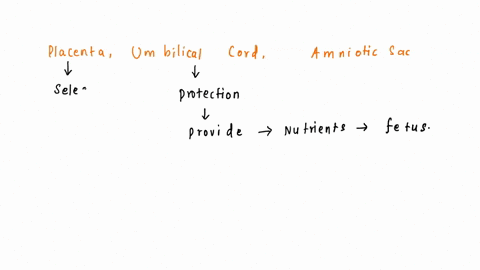 Placenta, Umbilical Cord, Amniotic Sac
↓ ↓
Sele Protection
↓
Provide → Nutrients → fetus.